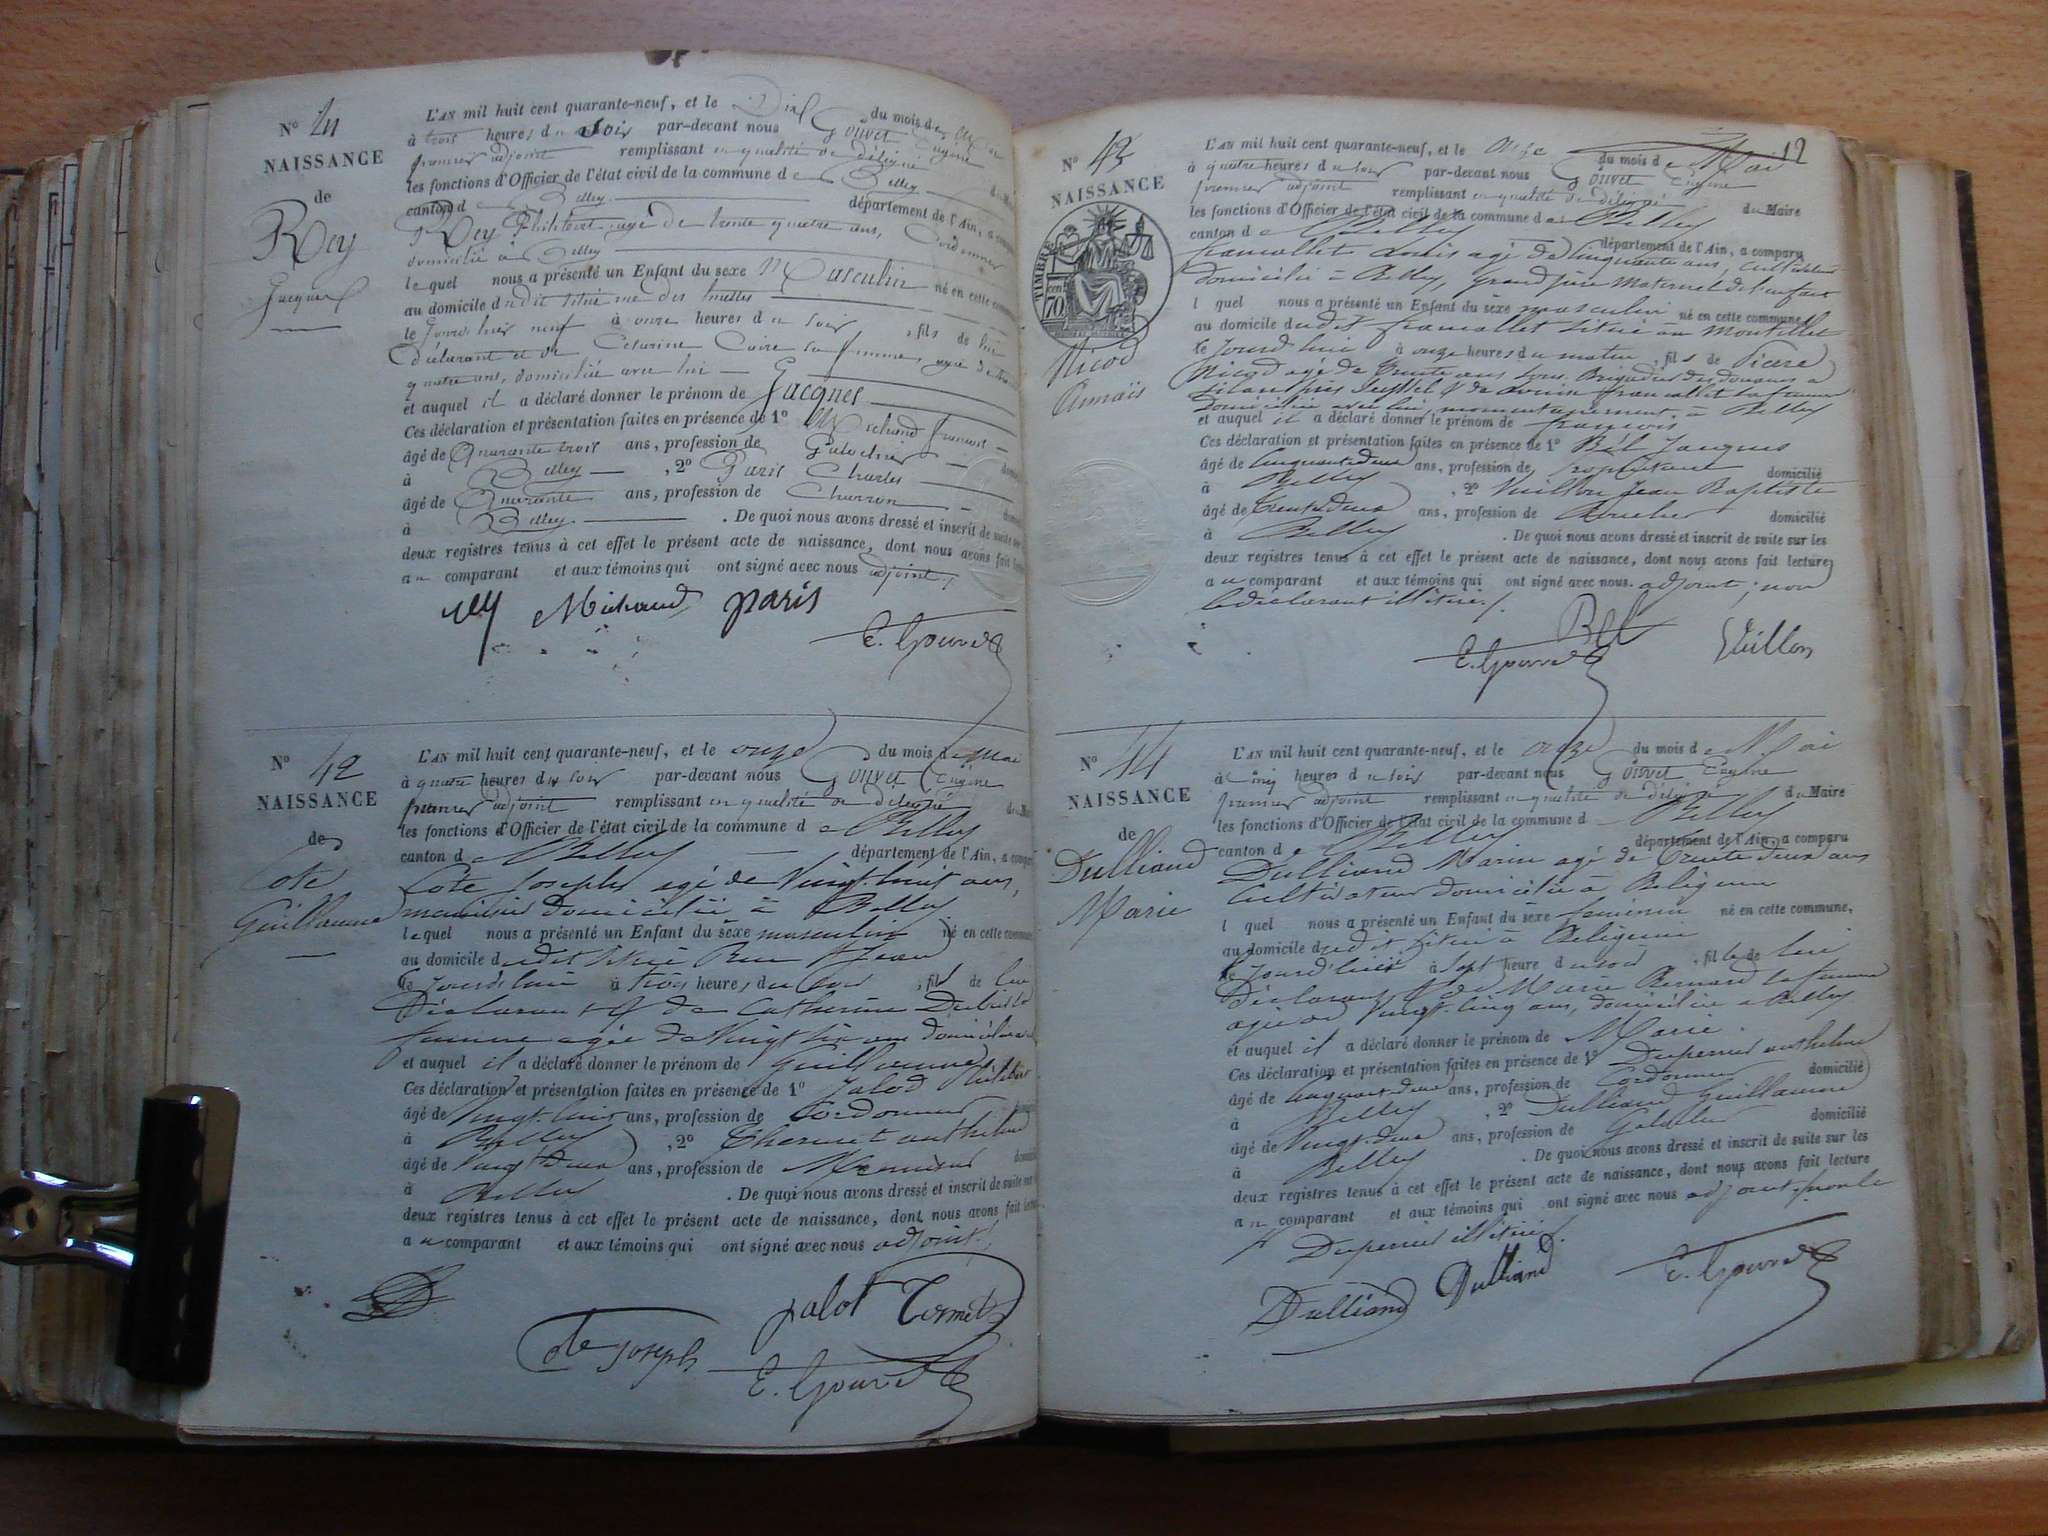 N° 41
NAISSANCE
de
Rey
Jacques
L'AN mil huit cent quarante-neuf, et le Dix du mois de
à trois heures du soir par-devant nous Gouvet Eugène
premier adjoint remplissant en qualité de délégué
les fonctions d'Officier de l'état civil de la commune de Belley
canton de Belley département de l'Ain, a
Rey Philibert agé de trente quatre ans, Cordonnier
domicilié à Belley
lequel nous a présenté un Enfant du sexe Masculin né en cette
au domicile dudit situé rue des
le jour d'hier neuf à onze heures du soir, fils de lui
déclarant et de Césarine Caire sa femme, agée de
quatre ans, domiciliée avec lui
et auquel il a déclaré donner le prénom de Jacques
Ces déclaration et présentation faites en présence de 1° Michaud françois
âgé de Quarante trois ans, profession de Galochier
à Belley, 2° Paris Charles
âgé de Quarante ans, profession de Charron
à Belley. De quoi nous avons dressé et inscrit de suite sur
deux registres tenus à cet effet le présent acte de naissance, dont nous avons fait
au comparant et aux témoins qui ont signé avec nous adjoint./.
rey Michaud paris
E. Gouvet
N° 42
NAISSANCE
de
Cote
Guillaume
L'AN mil huit cent quarante-neuf, et le onze du mois de mai
à quatre heures du soir par-devant nous Gouvet Eugène
premier adjoint remplissant en qualité de délégué du
les fonctions d'Officier de l'état civil de la commune de Belley
canton de Belley département de l'Ain, a
Cote Joseph agé de vingt huit ans,
menuisier domicilié à Belley
lequel nous a présenté un Enfant du sexe masculin né en cette
au domicile dudit situé Rue St Jean
le jourd'hui à trois heures du soir, fils de lui
Déclarant & de Catherine
femme agée de vingt six ans
et auquel il a déclaré donner le prénom de Guillaume
Ces déclaration et présentation faites en présence de 1° Jalod Philibert
âgé de vingt huit ans, profession de Cordonnier
à Belley, 2° Thermet anthelme
âgé de vingt deux ans, profession de Menuisier
à Belley. De quoi nous avons dressé et inscrit de suite sur
deux registres tenus à cet effet le présent acte de naissance, dont nous avons fait
au comparant et aux témoins qui ont signé avec nous adjoint./.
jalot Termet
Cote joseph
E. Gouvet
12
N° 43
NAISSANCE
TIMBRE
70
Nicod
L'AN mil huit cent quarante-neuf, et le onze du mois de Mai
à quatre heures du soir par-devant nous Gouvet Eugène
premier adjoint remplissant en qualité de délégué du Maire
les fonctions d'Officier de l'état civil de la commune de Belley
canton de Belley département de l'Ain, a comparu
francallet Louis agé de Cinquante ans, cultivateur
domicilié à Belley, grand père maternel de l'enfant
lequel nous a présenté un Enfant du sexe masculin né en cette commune,
au domicile dudit francallet situé au Montillet
le jourd'hui à onze heures du matin, fils de Pierre
Nicod agé de trente ans Sous Brigadier des douanes à
près Seyssel & de francallet sa femme
Domiciliée avec lui, momentanément à Belley
et auquel il a déclaré donner le prénom de françois
Ces déclaration et présentation faites en présence de 1° Bel Jacques
âgé de Cinquante deux ans, profession de Propriétaire domicilié
à Belley, 2° Vuillon Jean Baptiste
âgé de trente deux ans, profession de domicilié
à Belley. De quoi nous avons dressé et inscrit de suite sur les
deux registres tenus à cet effet le présent acte de naissance, dont nous avons fait lecture
au comparant et aux témoins qui ont signé avec nous adjoint; non
le déclarant illitéré./.
Bel
E. Gouvet Vuillon
N° 44
NAISSANCE
de
Dulliand
Marie
L'AN mil huit cent quarante-neuf, et le onze du mois de Mai
à Cinq heures du soir par-devant nous Gouvet Eugène
premier adjoint remplissant en qualité de délégué du Maire
les fonctions d'Officier de l'état civil de la commune de Belley
canton de Belley département de l'Ain, a comparu
Dulliand Marin agé de trente deux ans
Cultivateur domicilié à
lequel nous a présenté un Enfant du sexe féminin né en cette commune,
au domicile dudit situé à
le jourd'hui à sept heure du soir, fille de lui
Déclarant & de Marie Bernard sa femme
agée de vingt-cinq ans, domiciliée à Belley
et auquel il a déclaré donner le prénom de Marie.
Ces déclaration et présentation faites en présence de 1° Duperrier anthelme
âgé de Cinquante deux ans, profession de Cordonnier domicilié
à Belley, 2° Dulliand Guillaume
âgé de vingt deux ans, profession de domicilié
à Belley. De quoi nous avons dressé et inscrit de suite sur les
deux registres tenus à cet effet le présent acte de naissance, dont nous avons fait lecture
au comparant et aux témoins qui ont signé avec nous adjoint, non le
Sr Duperrier illitéré./.
Dulliand Dulliand E. Gouvet